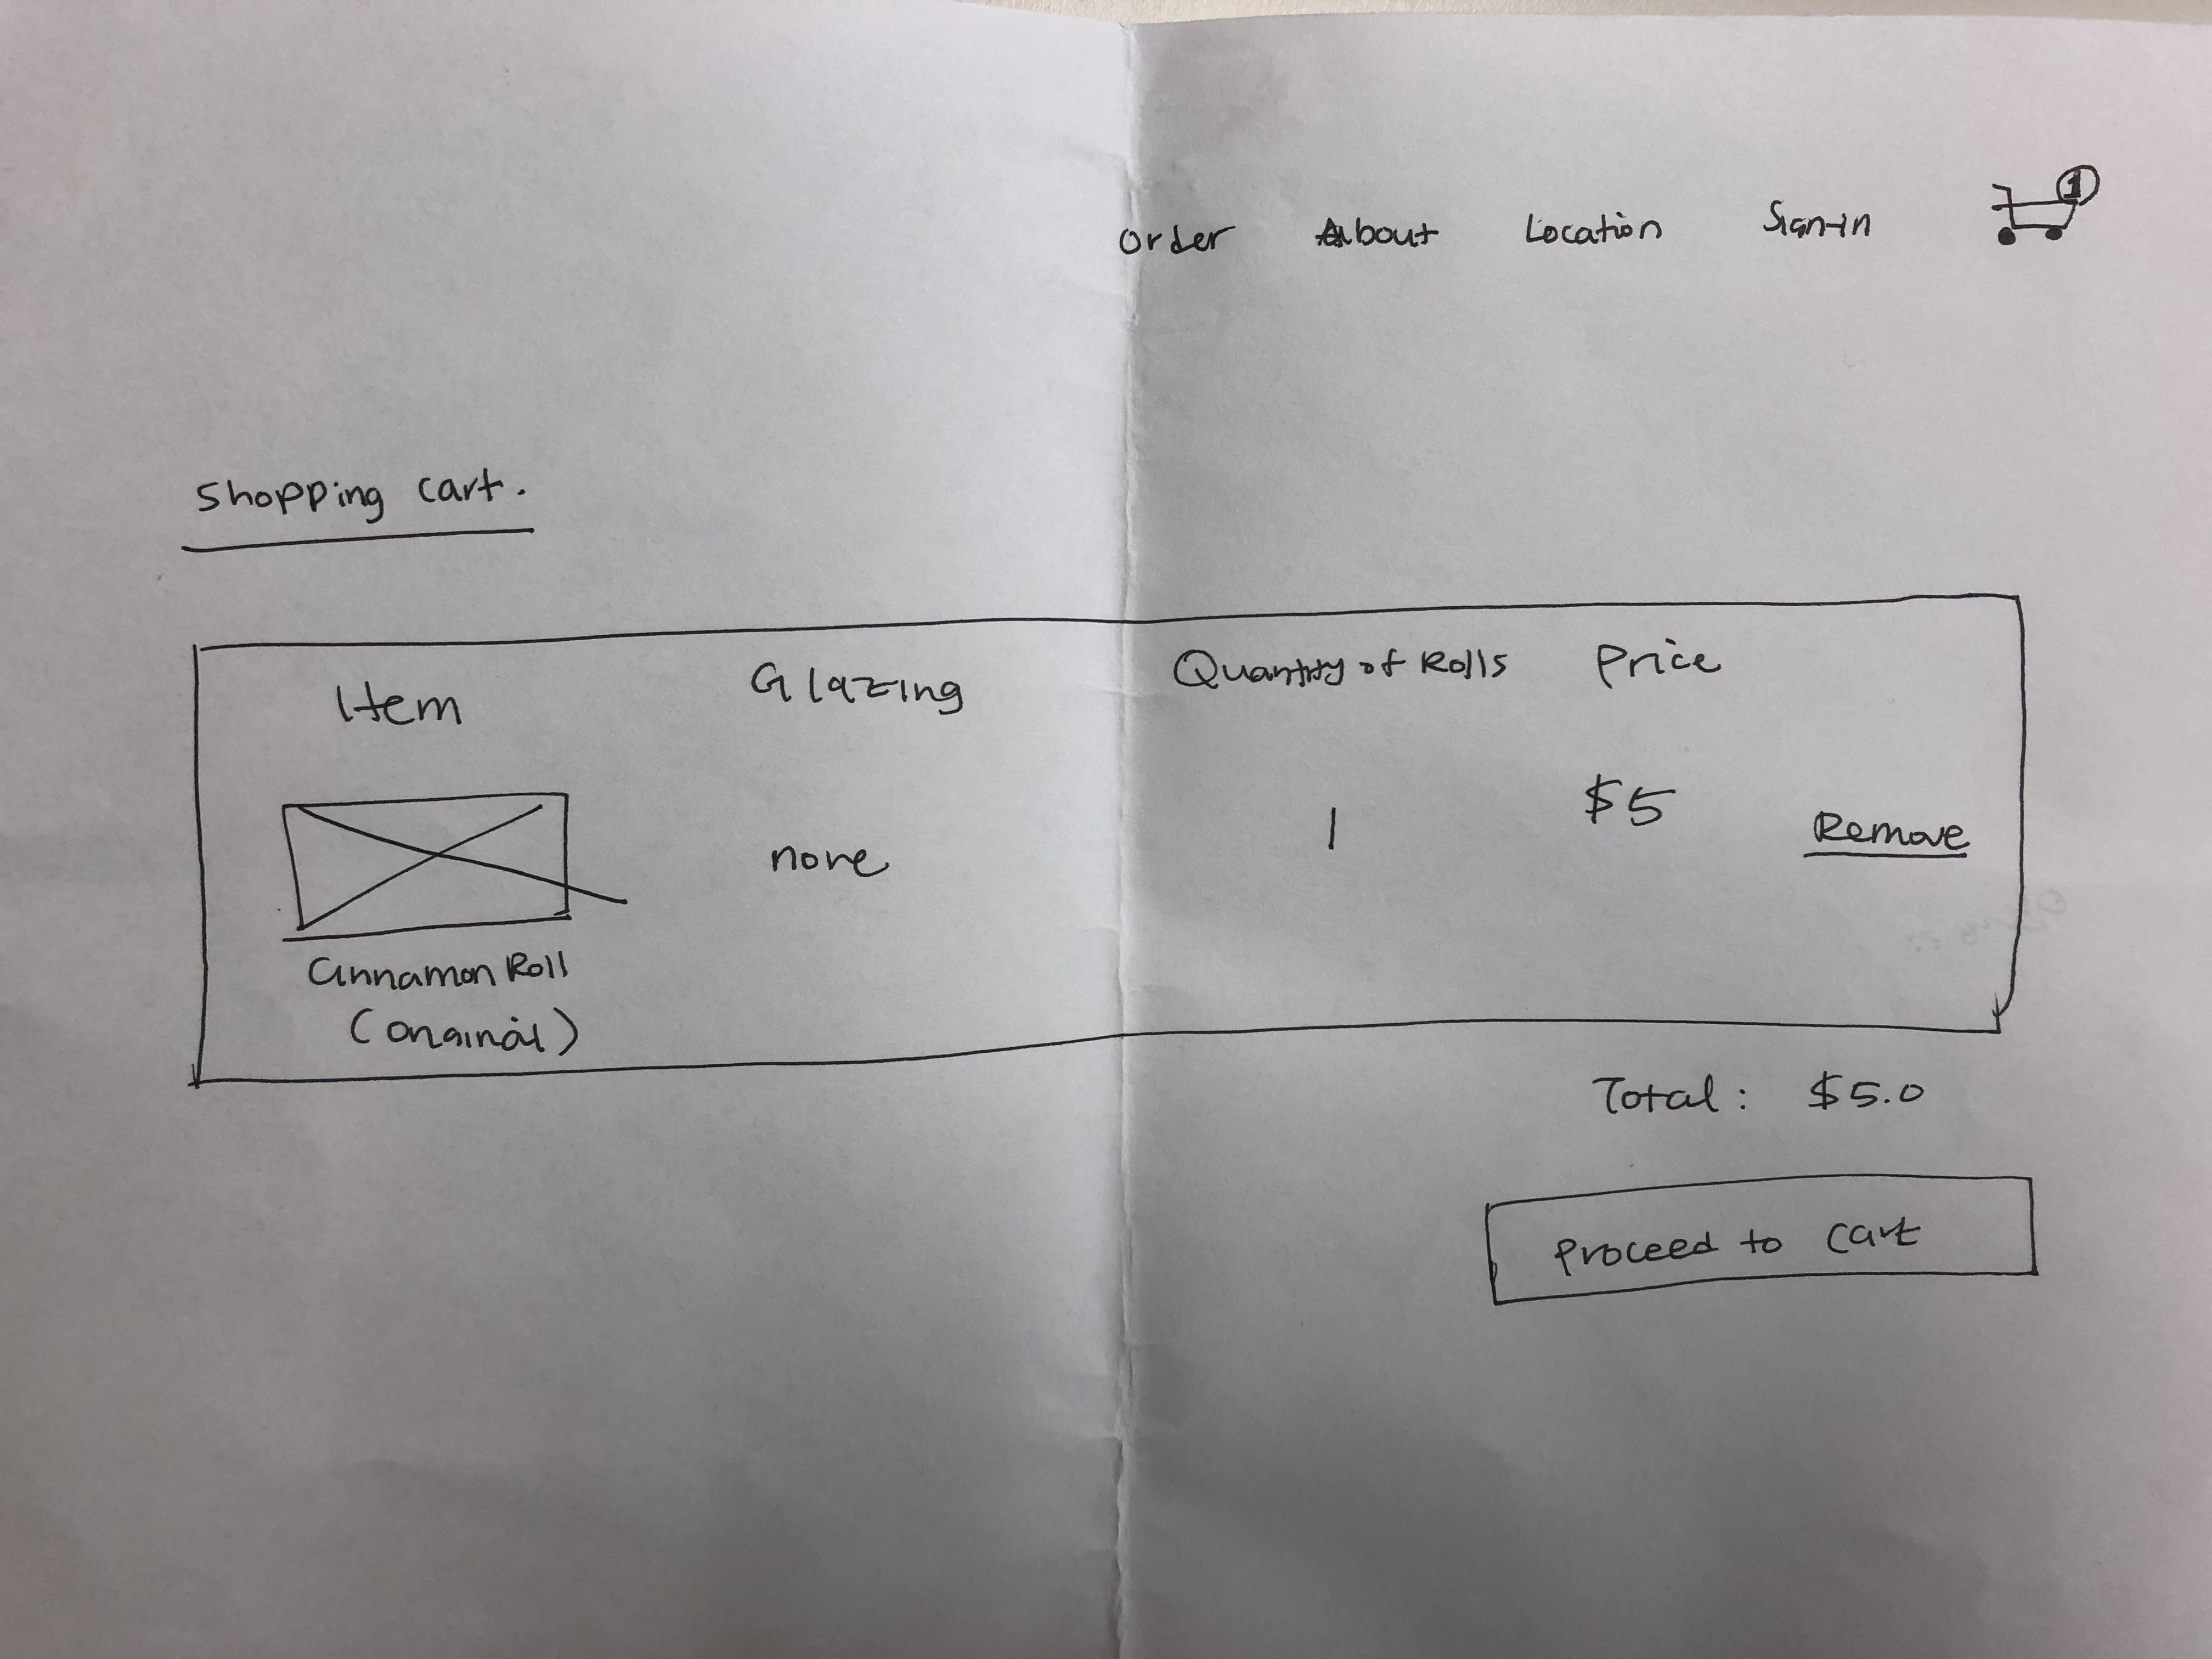 Order About Location Sign-in 1
Shopping Cart.
Item Glazing Quantity of Rolls Price
none 1 $5 Remove
Cinnamon Roll
(Original)
Total: $5.0
Proceed to Cart